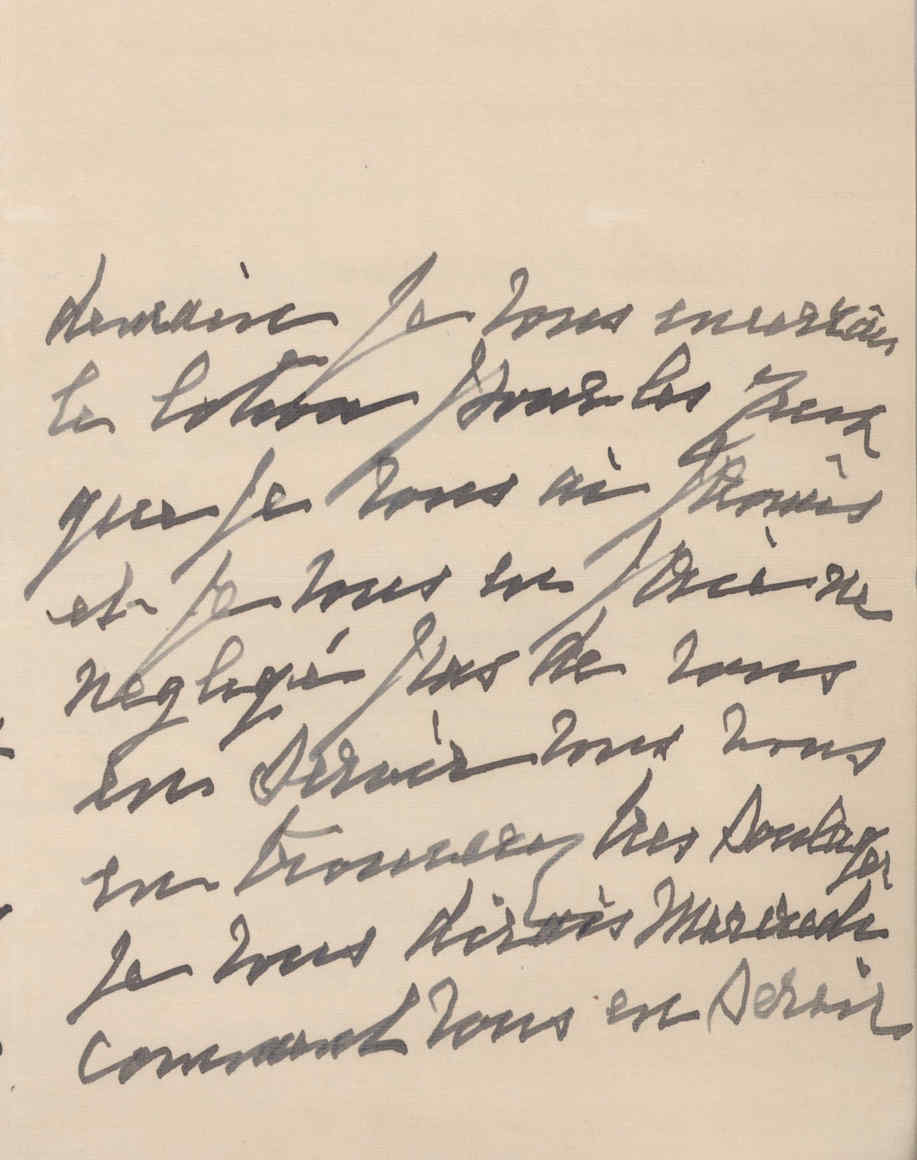 demain je vous enverrais
la lotion pour les yeux
que je vous ai promis
et je vous en prie ne
negligé pas de vous
en servir vous vous
en trouverez tres soulager
je vous dirais Mercredi
comment vous en servir